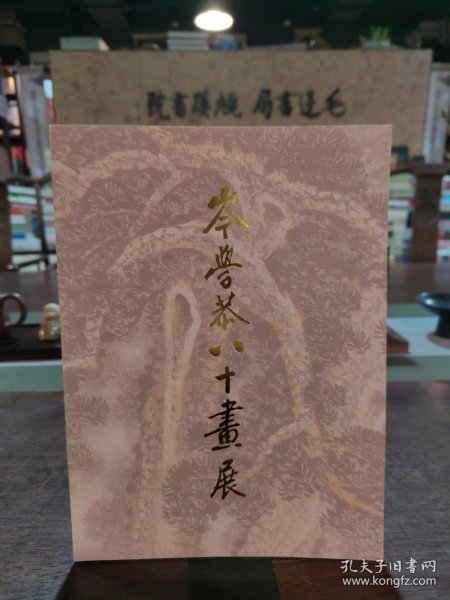 毛边書局 槐蔭書院
岑學恭八十畫展
孔夫子旧书网
www.kongfz.com